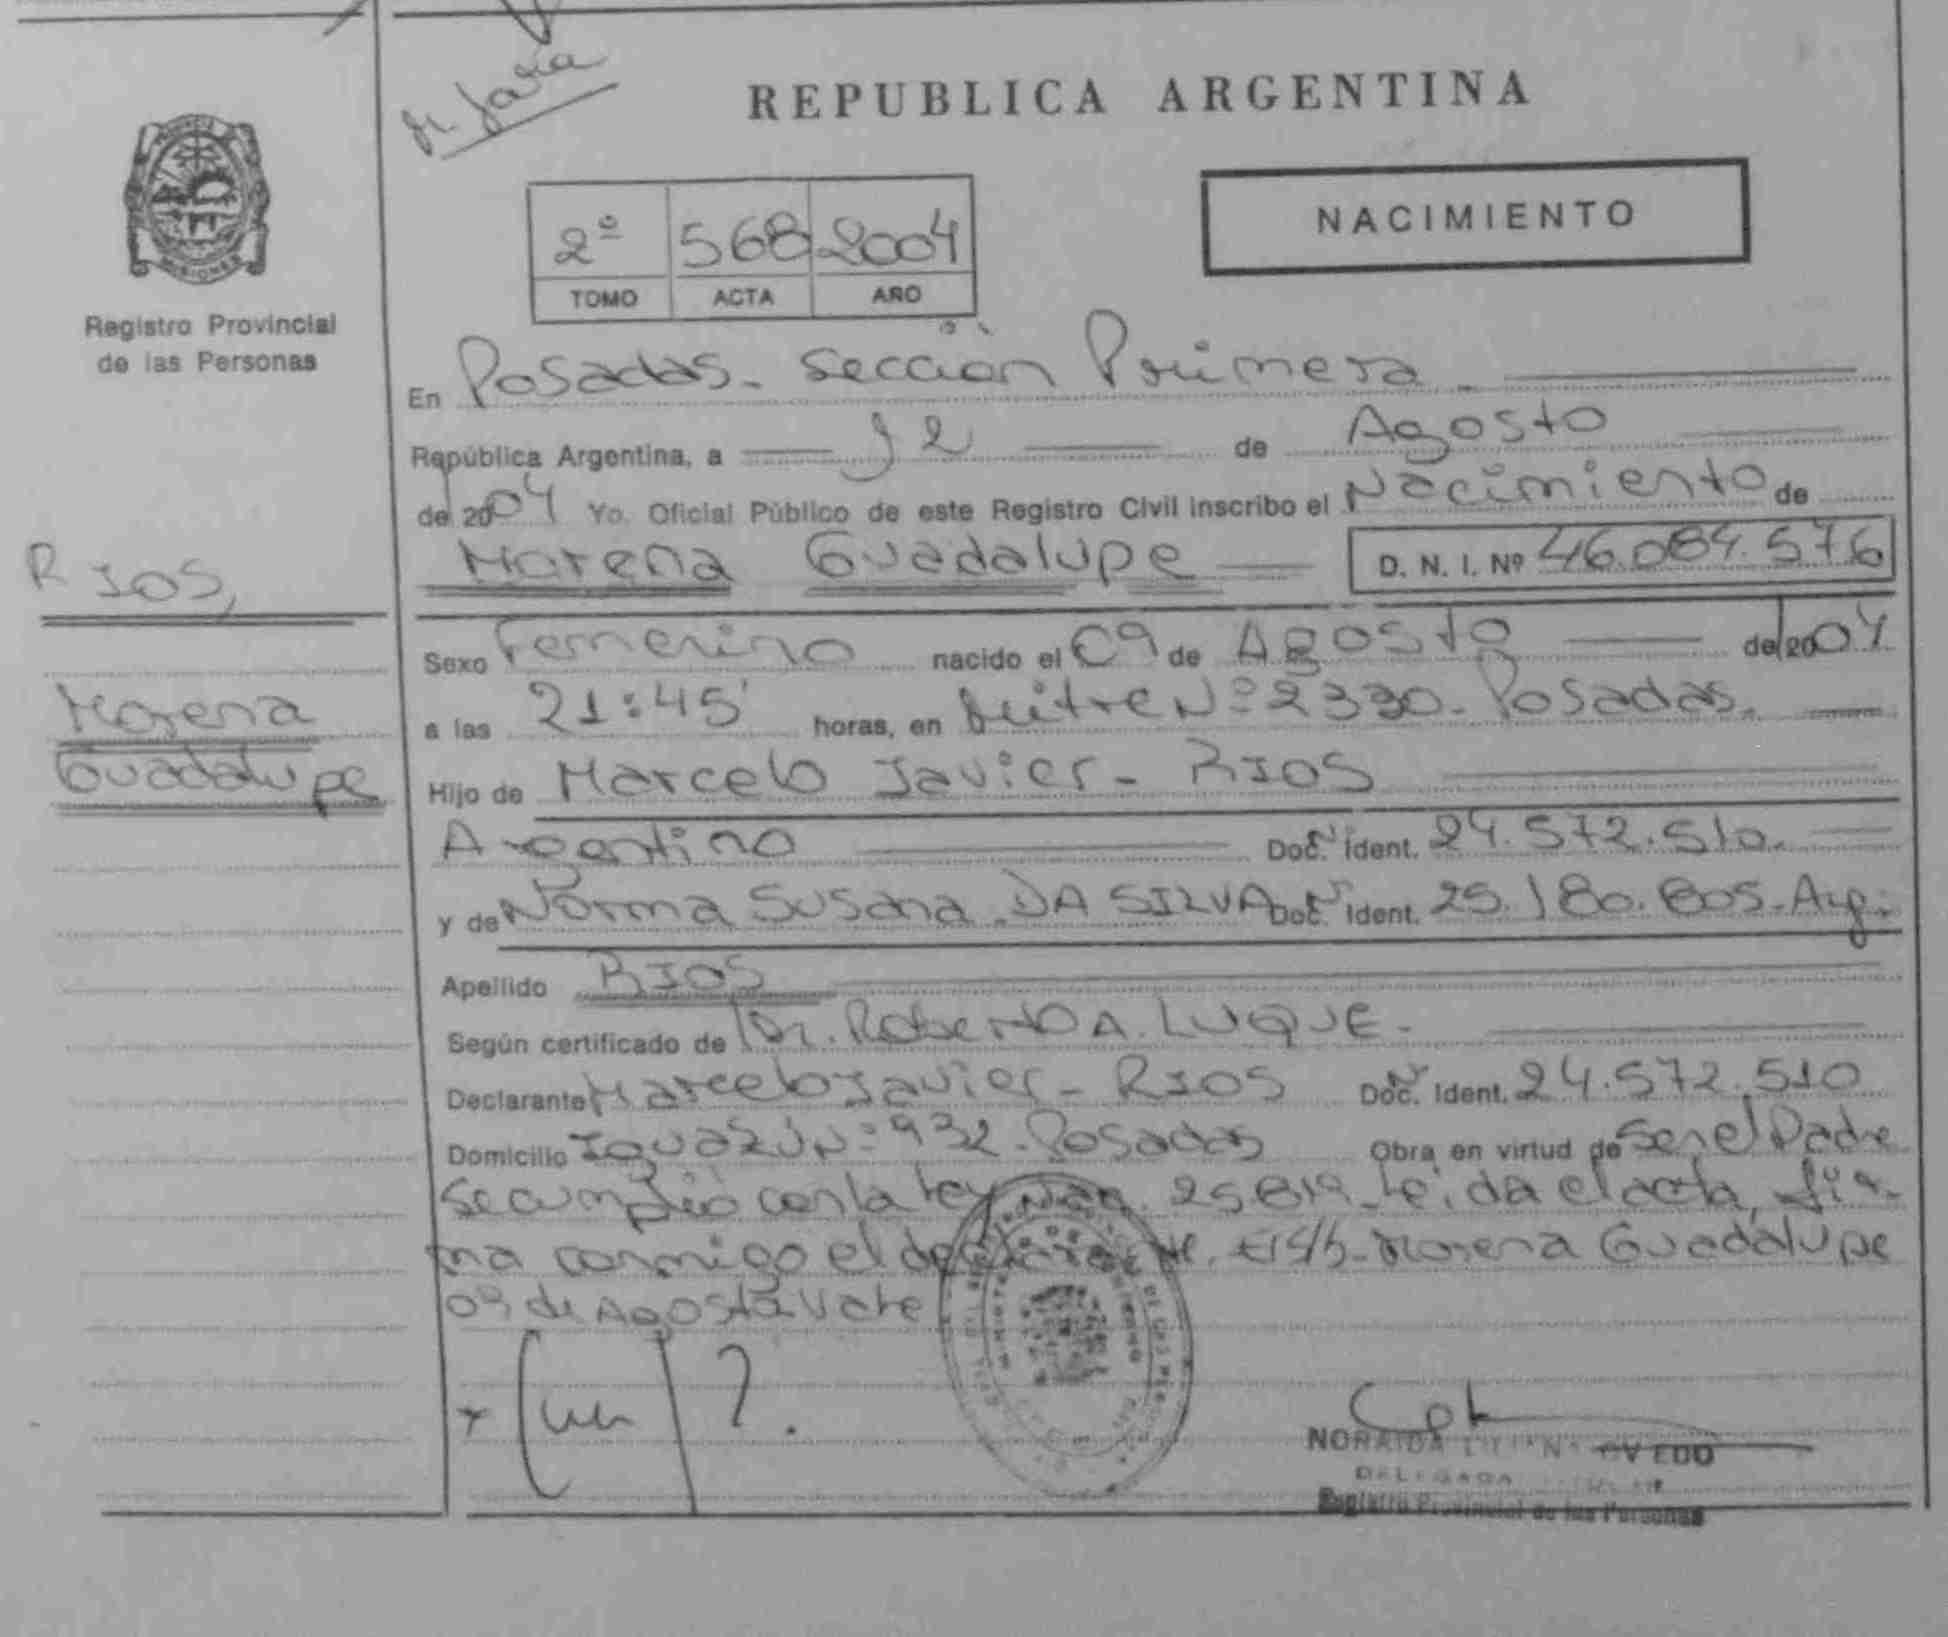 REPUBLICA ARGENTINA
PROVINCIA
MISIONES
Registro Provincial
de las Personas
2º 568 2004
TOMO ACTA AÑO
NACIMIENTO
En Posadas - Sección Primera
República Argentina, a 12 de Agosto
de 2004 Yo, Oficial Público de este Registro Civil inscribo el Nacimiento de
Morena Guadalupe D. N. I. Nº 46.084.576
RIOS,
Morena
Guadalupe
Sexo Femenino nacido el 09 de Agosto de 2004
a las 21:45' horas, en Mitre Nº 2330 - Posadas.
Hijo de Marcelo Javier - RIOS
Argentino Doc. Ident. 24.572.510.
y de Norma Susana DA SILVA Doc. Ident. 25.180.805 - Arg.
Apellido RIOS
Según certificado de Dr. Roberto A. LUQUE.
Declarante Marcelo Javier - RIOS Doc. Ident. 24.572.510
Domicilio IGUAZÚ Nº 932 - Posadas Obra en virtud de Ser el Padre
Se cumplió con la Ley 25819. Leída el acta, fir-
ma conmigo el declarante. Morena Guadalupe
09 de Agosto Vale
NORAIDA OVEDO
DELEGADA
Registro Provincial de las Personas